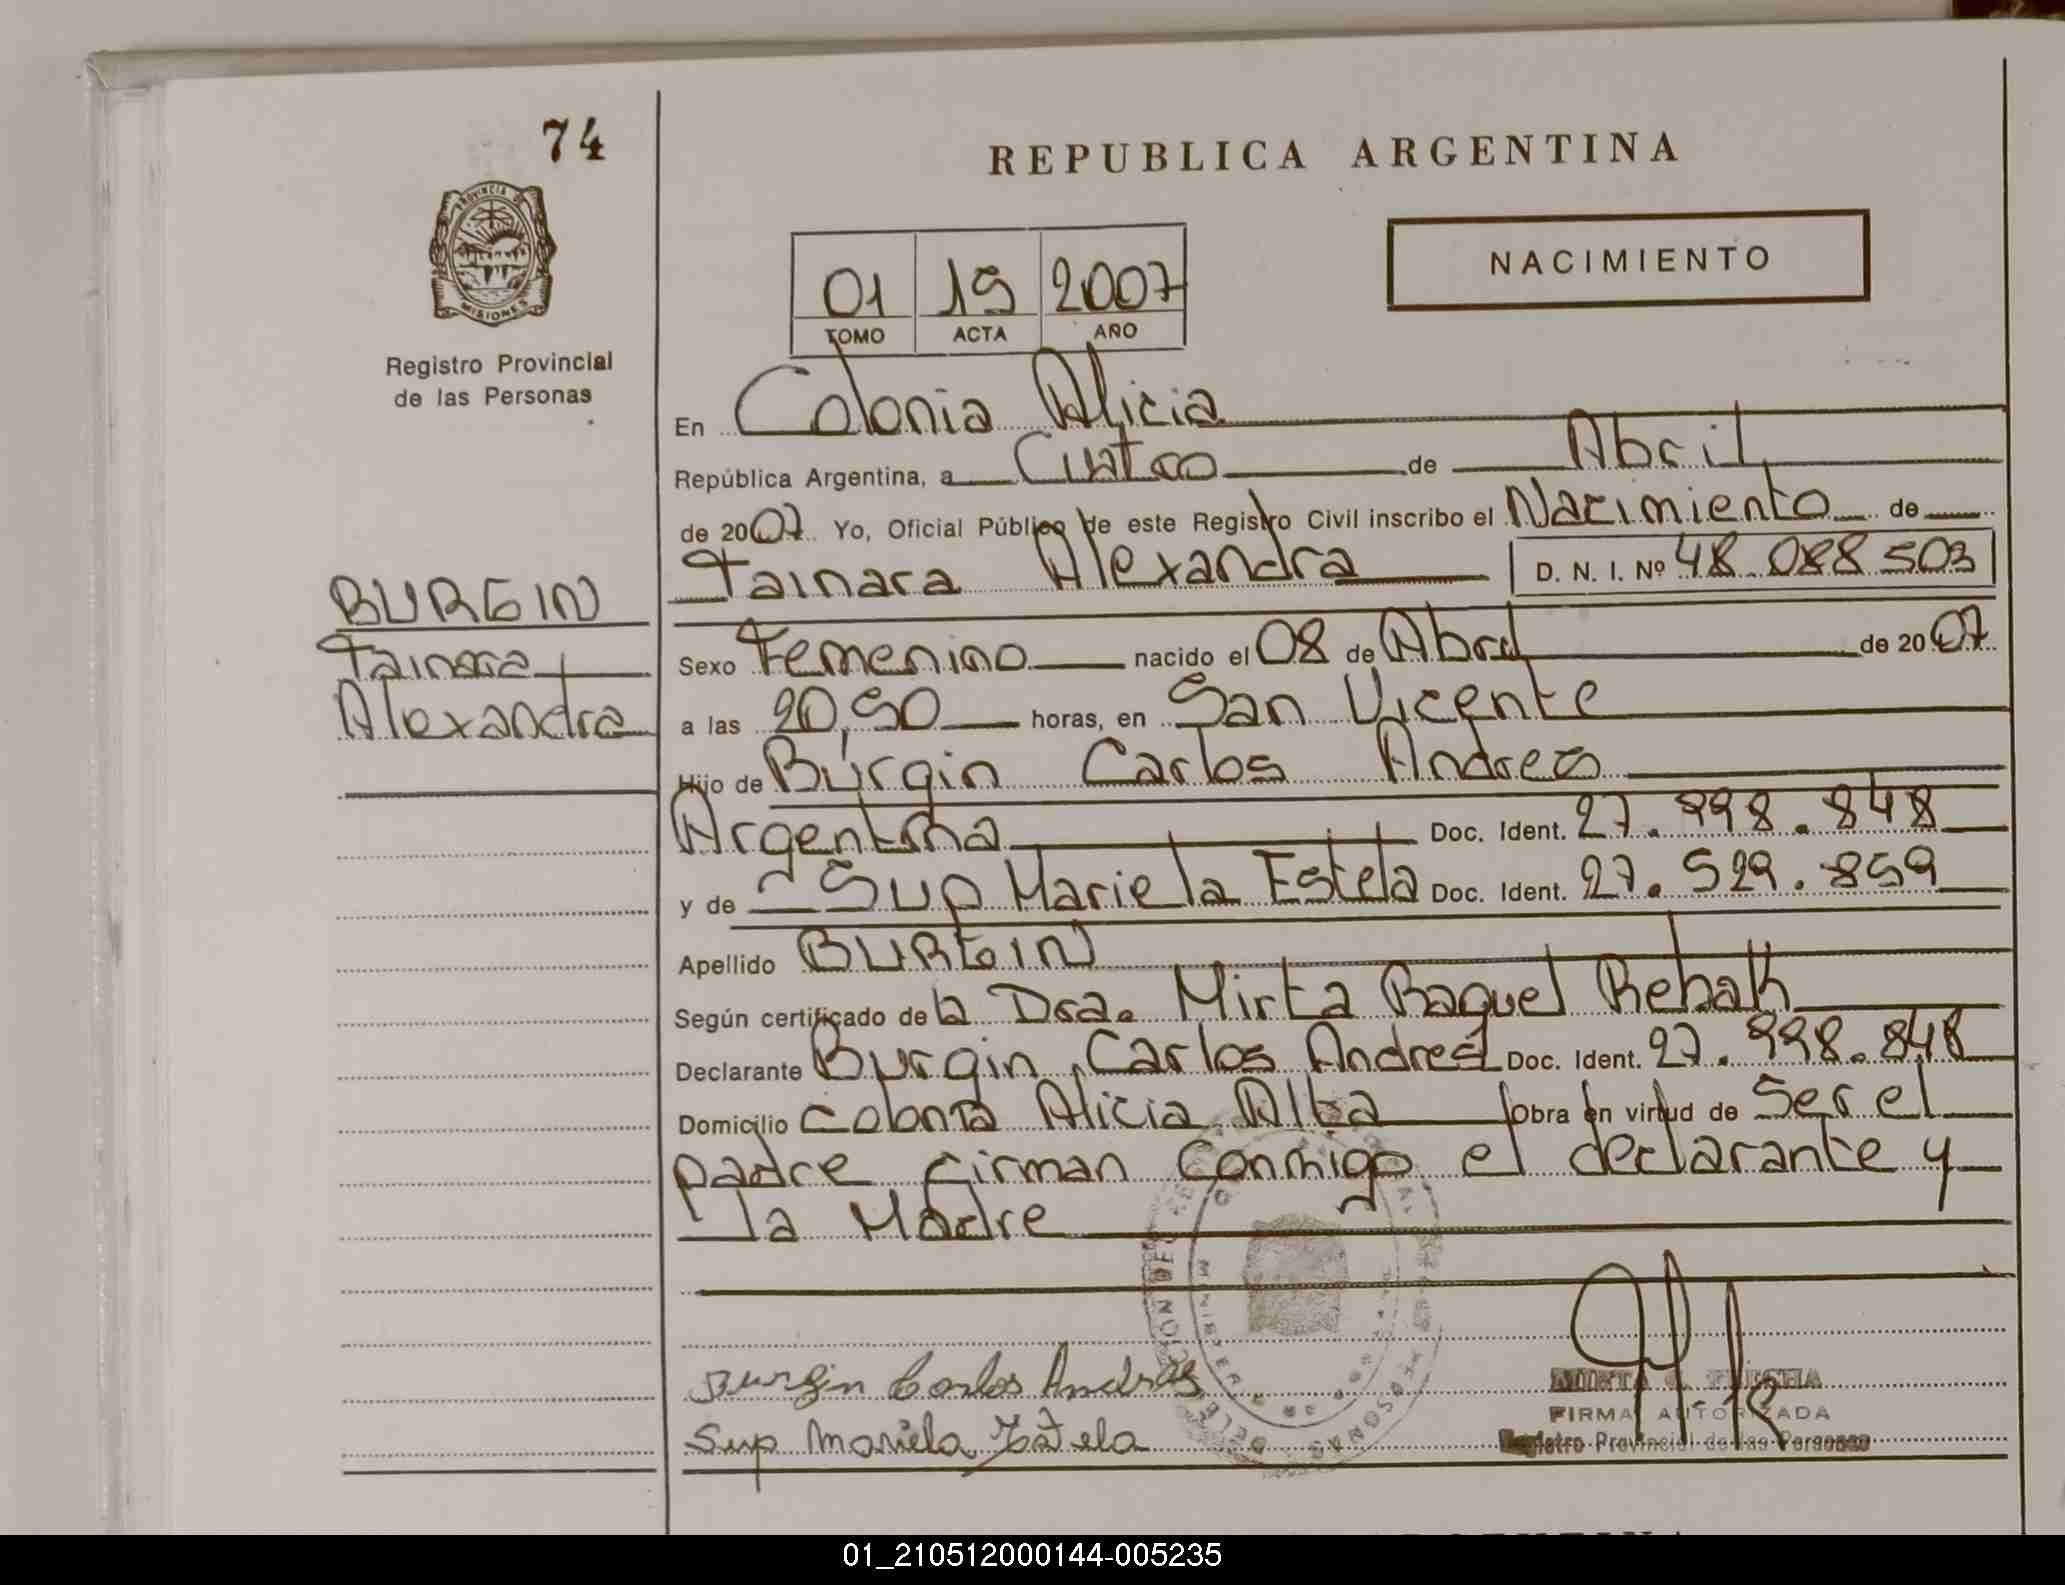 74
REPUBLICA ARGENTINA
PROVINCIA DE
MISIONES
Registro Provincial
de las Personas
NACIMIENTO
01 19 2007
TOMO ACTA AÑO
En Colonia Alicia
República Argentina, a Cuatro de Abril
de 2007 Yo, Oficial Público de este Registro Civil inscribo el Nacimiento de
Tainara Alexandra D. N. I. Nº 48.088.503
BURGIN
Tainara
Alexandra
Sexo Femenino nacido el 08 de Abril de 2007
a las 20,50 horas, en San Vicente
Hijo de Bürgin Carlos Andres
Argentina Doc. Ident. 27.998.848
y de Sup Mariela Estela Doc. Ident. 27.529.859
Apellido BURGIN
Según certificado de la Dra. Mirta Raquel
Declarante Burgin, Carlos Andrés Doc. Ident. 27.998.848
Domicilio Colonia Alicia Alta Obra en virtud de Ser el
padre firman conmigo el declarante y
la Madre
Burgin Carlos Andrés
Sup Mariela Estela
FIRMA AUTORIZADA
Registro Provincial de las Personas
01_210512000144-005235